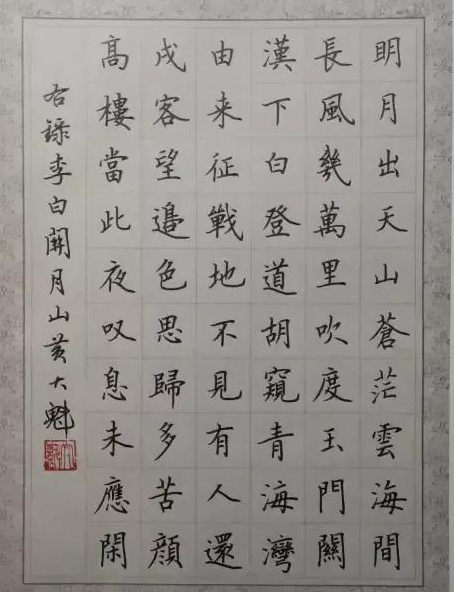 明月出天山蒼茫雲海間
長風幾萬里吹度玉門關
漢下白登道胡窺青海灣
由来征戰地不見有人還
戍客望邉色思歸多苦顔
髙樓當此夜叹息未應閑
右錄李白関月山黄大魁